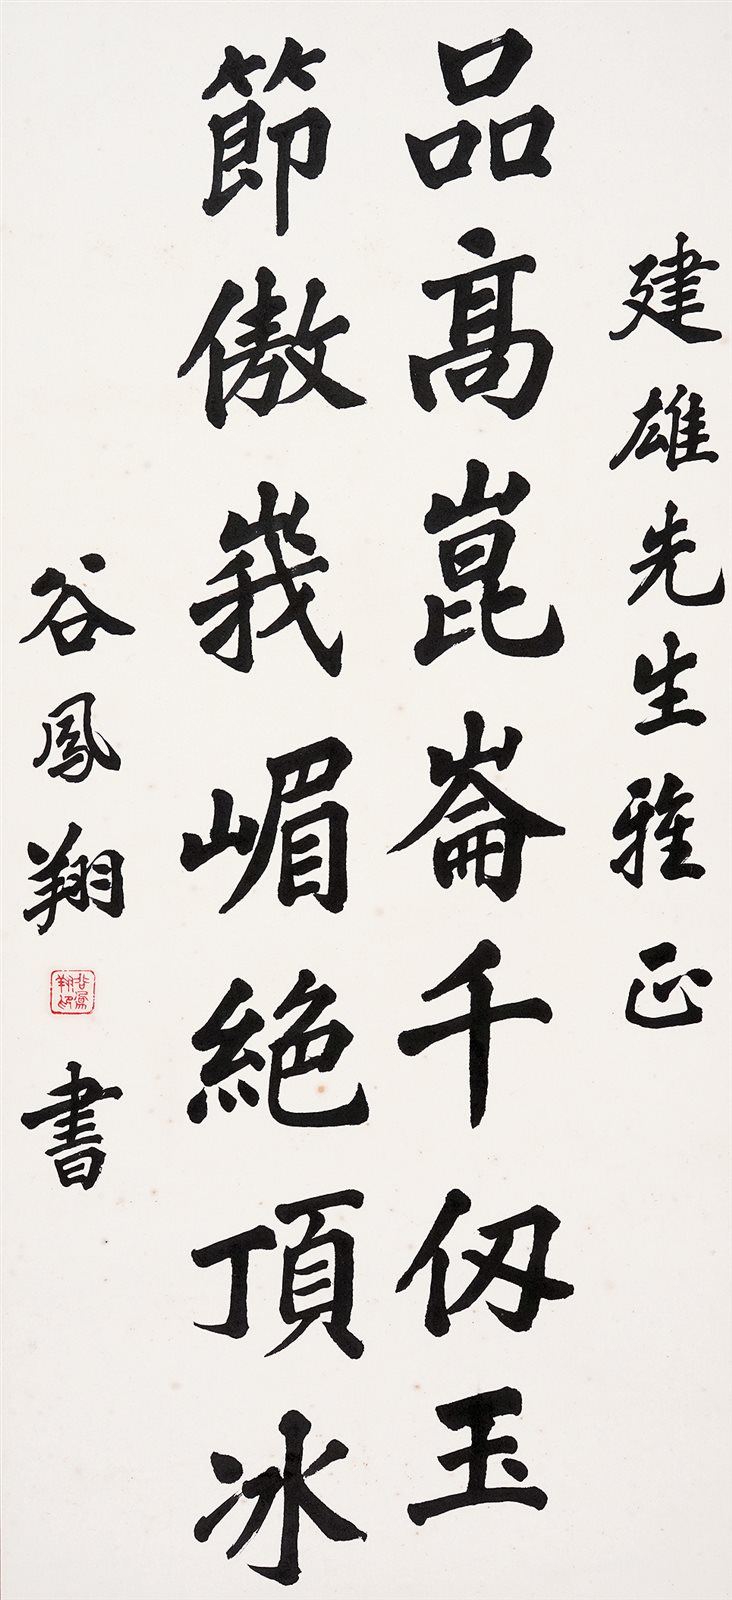 建雄先生雅正
品高崑崙千仭玉
節傲峩嵋絕頂冰
谷鳳翔書
谷鳳翔印